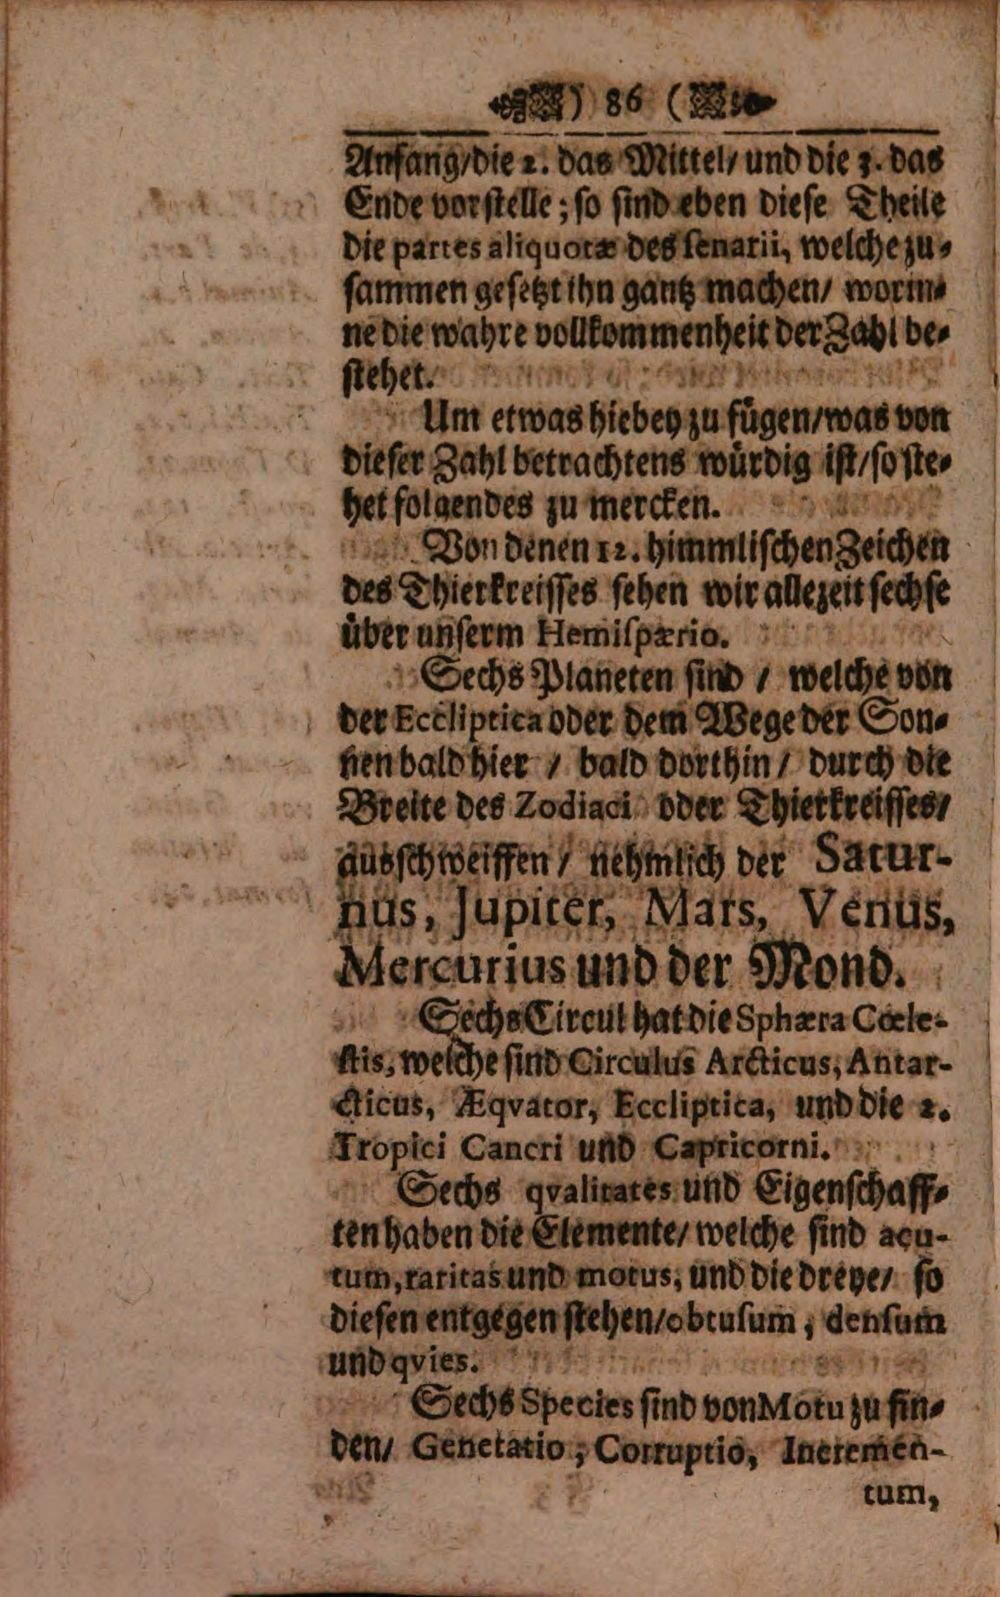 ) 86 (
Anfang/die 2. das Mittel/ und die 3. das
Ende vorſtelle; ſo ſind eben dieſe Theile
die partes aliquotæ des ſenarii, welche zu⸗
ſammen geſetzt ihn gantz machen/ worin⸗
ne die wahre vollkommenheit der Zahl be⸗
ſtehet.
Um etwas hiebey zu fuͤgen/was von
dieſer Zahl betrachtens wuͤrdig iſt/ſo ſte⸗
het folgendes zu mercken.
Von denen 12. himmliſchen Zeichen
des Thierkreiſſes ſehen wir allezeit ſechſe
uͤber unſerm Hemiſpærio.
Sechs Planeten ſind / welche von
der Eccliptica oder dem Wege der Son⸗
nen bald hier / bald dorthin / durch die
Breite des Zodiaci oder Thierkreiſſes/
ausſchweiffen / nehmlich der Satur-
nus, Jupiter, Mars, Venus,
Mercurius und der Mond.
Sechs Circul hat die Sphæra Cœle-
ſtis, welche ſind Circulus Arcticus, Antar-
cticus, Æqvator, Eccliptica, und die 2.
Tropici Cancri und Capricorni.
Sechs qvalitates und Eigenſchaff⸗
ten haben die Elemente/ welche ſind acu-
tum, raritas und motus, und die dreye/ ſo
dieſen entgegen ſtehen/obtuſum, denſum
und qvies.
Sechs Species ſind von Motu zu fin⸗
den/ Generatio, Corruptio, Incremen-
tum,